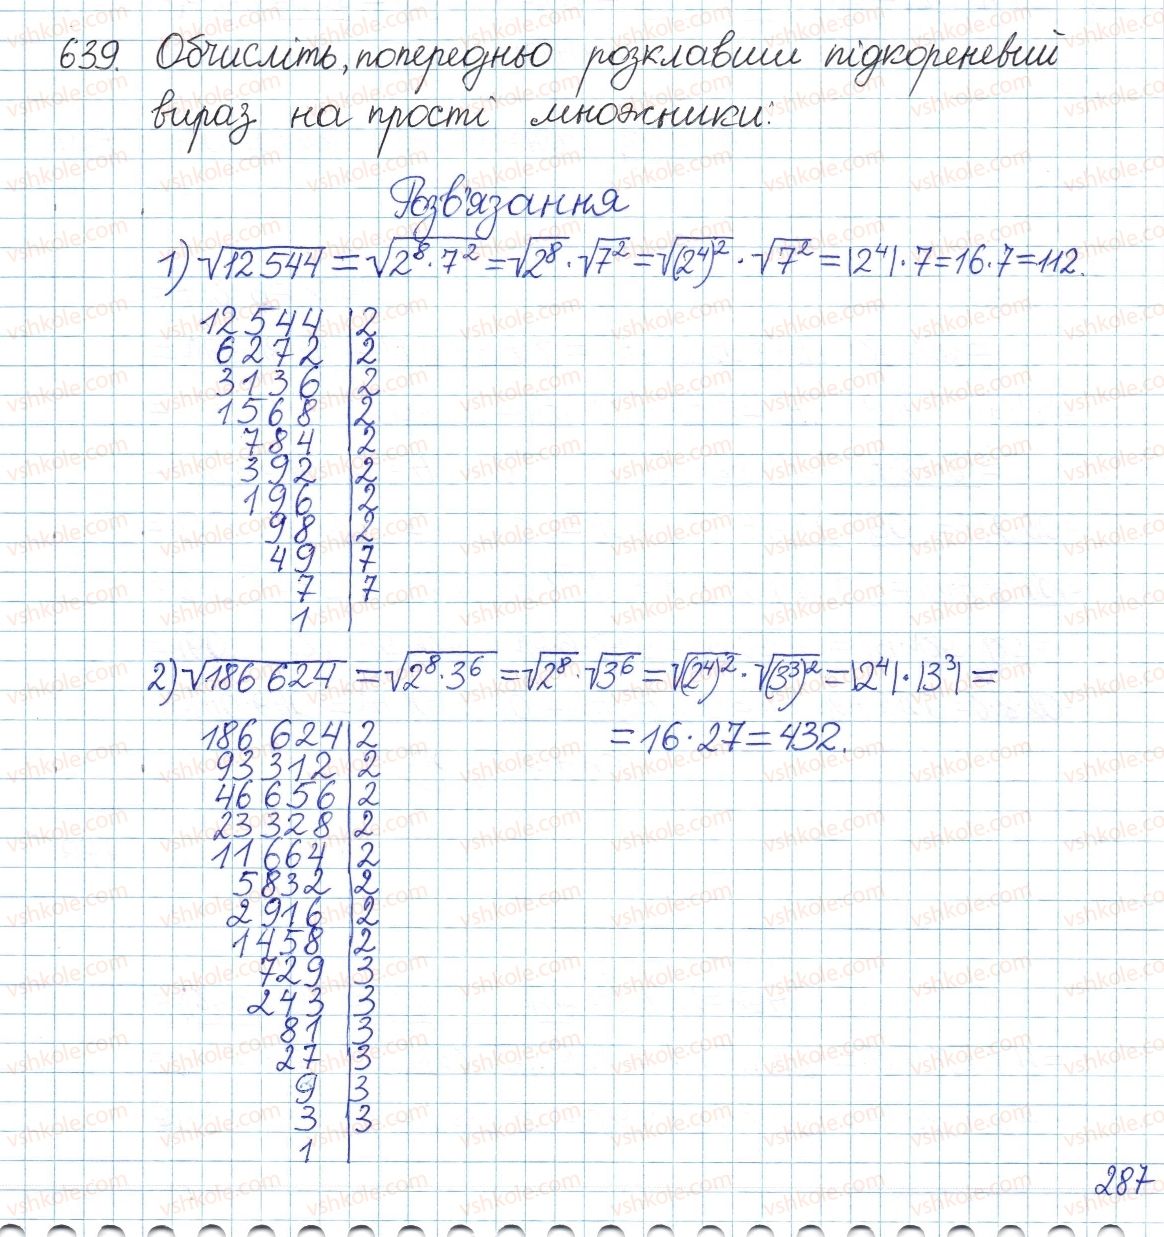 639. Обчисліть, попередньо розклавши підкореневий
вираз на прості множники:
Розв'язання
1) √12 544 = √2⁸·7² = √2⁸ · √7² = √(2⁴)² · √7² = |2⁴| · 7 = 16 · 7 = 112.
12 544 | 2
6272 | 2
3136 | 2
1568 | 2
784 | 2
392 | 2
196 | 2
98 | 2
49 | 7
7 | 7
1
2) √186 624 = √2⁸·3⁶ = √2⁸ · √3⁶ = √(2⁴)² · √(3³)² = |2⁴| · |3³| =
= 16 · 27 = 432.
186 624 | 2
93 312 | 2
46 656 | 2
23 328 | 2
11 664 | 2
5832 | 2
2916 | 2
1458 | 2
729 | 3
243 | 3
81 | 3
27 | 3
9 | 3
3 | 3
1
287
vshkole.com